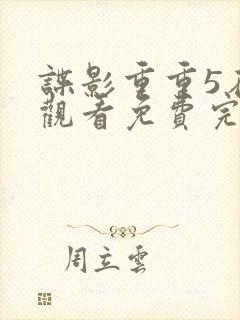 諜影重重5
觀看免費完
周立雲